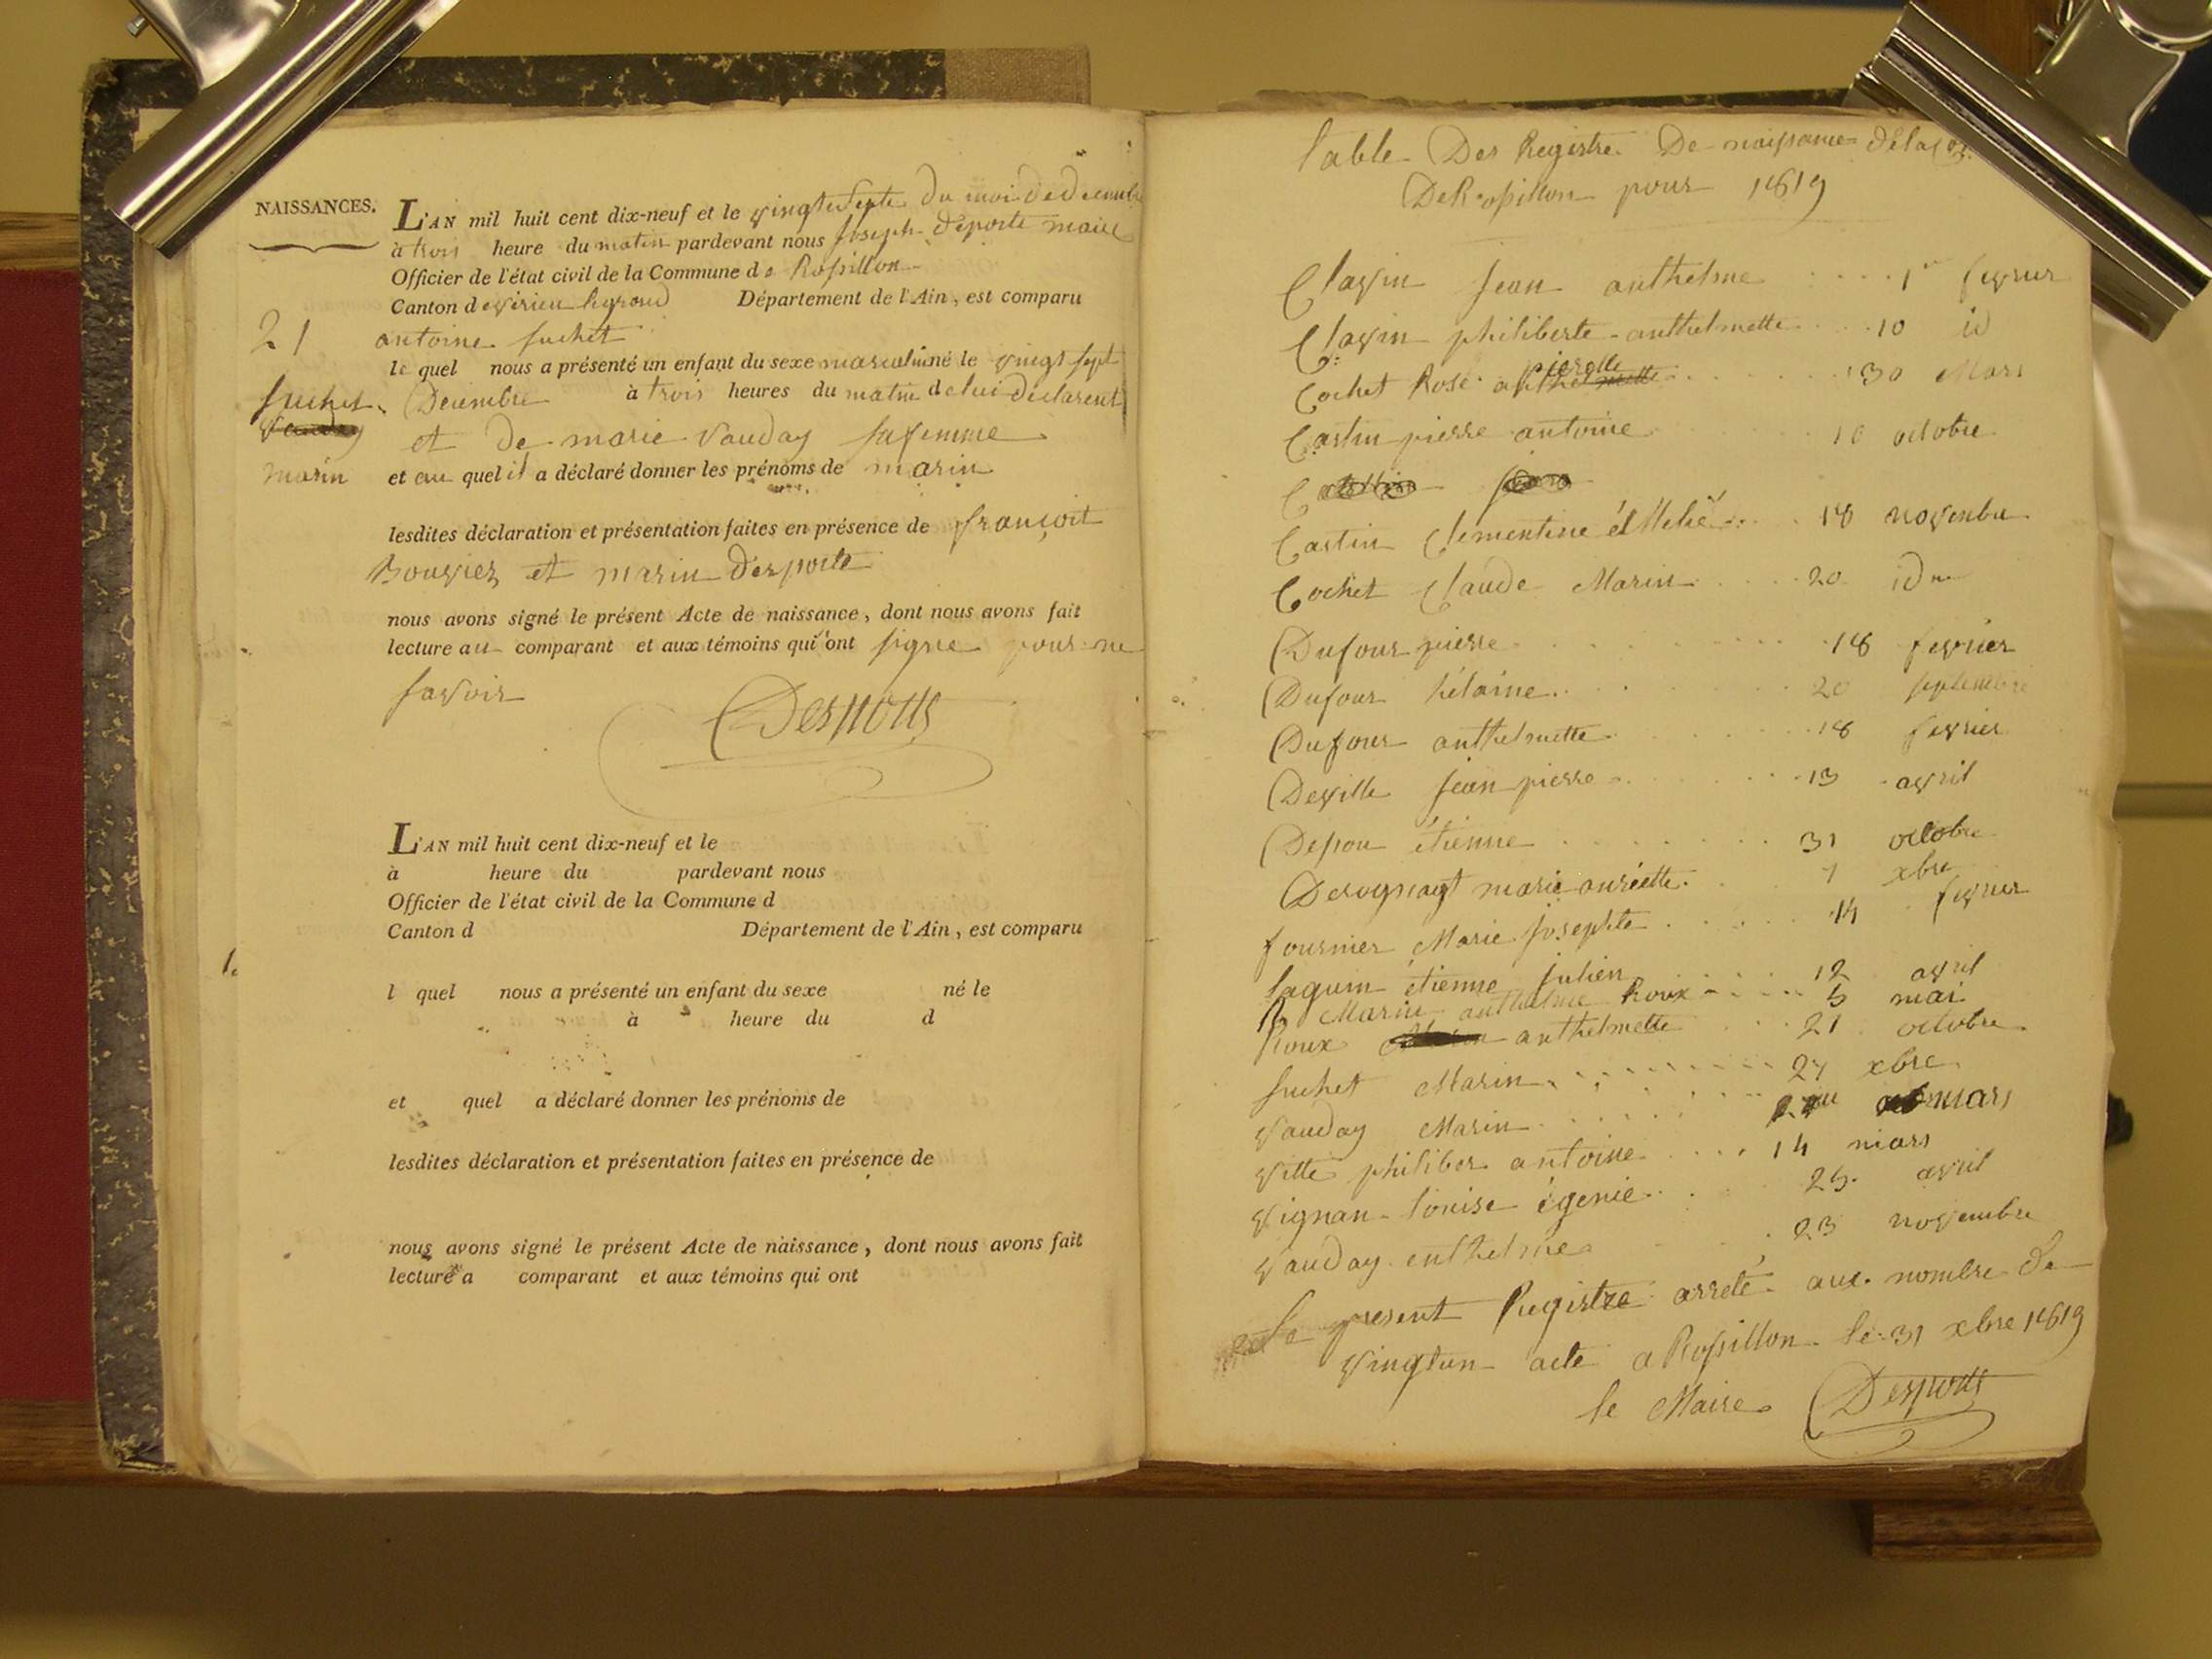 NAISSANCES.
L'AN mil huit cent dix-neuf et le vingtesepte du moi de decembre
à trois heure du matin pardevant nous joseph deporte maire
Officier de l'état civil de la Commune de Rossillon
Canton de virieu legrand Département de l'Ain, est comparu
21
antoine suchet
le quel nous a présenté un enfant du sexe masculin né le vingt sept
suchet Decembre à trois heures du matin de lui declarent
vauday et de marie vauday sa femme
marin et au quel il a déclaré donner les prénoms de marin
lesdites déclaration et présentation faites en présence de françoit
Bouvier et marin desporte
nous avons signé le présent Acte de naissance, dont nous avons fait
lecture au comparant et aux témoins qui n'ont signe pour ne
savoir
Desports
L'AN mil huit cent dix-neuf et le
à heure du pardevant nous
Officier de l'état civil de la Commune d
Canton d Département de l'Ain, est comparu
l quel nous a présenté un enfant du sexe né le
à heure du d
et quel a déclaré donner les prénoms de
lesdites déclaration et présentation faites en présence de
nous avons signé le présent Acte de naissance, dont nous avons fait
lecture a comparant et aux témoins qui ont
table Des Registre De naissance dela
De Rossillon pour 1819
Clavin jean anthelme 1er fevrier
Clavin philiberte anthelmette 10 id
Cochet Rose pierette 30 Mars
Castin pierre antoine 10 octobre
Castin Clementine 18 novenbre
Cochet Claude Marin 20 idm
Dufour pierre 18 fevrier
Dufour hélaine 20 septembre
Dufour anthelmette 18 fevrier
Deville jean pierre 13 avril
étienne 31 octobre
marie 7 xbre
fournier Marie josephte 14 fevrier
laguin étienne julien 12 avril
R Marin anthelme Roux 5 mai
Roux anthelmette 21 octobre
suchet Marin 27 xbre
vauday Marin mars
vitte philiber antoine 14 mars
vignan louise égenie 25 avril
vauday enthelme 23 novembre
le present Registre arreté aux nombre de
vingtun acte a Rossillon le 31 xbre 1819
le Maire Desports